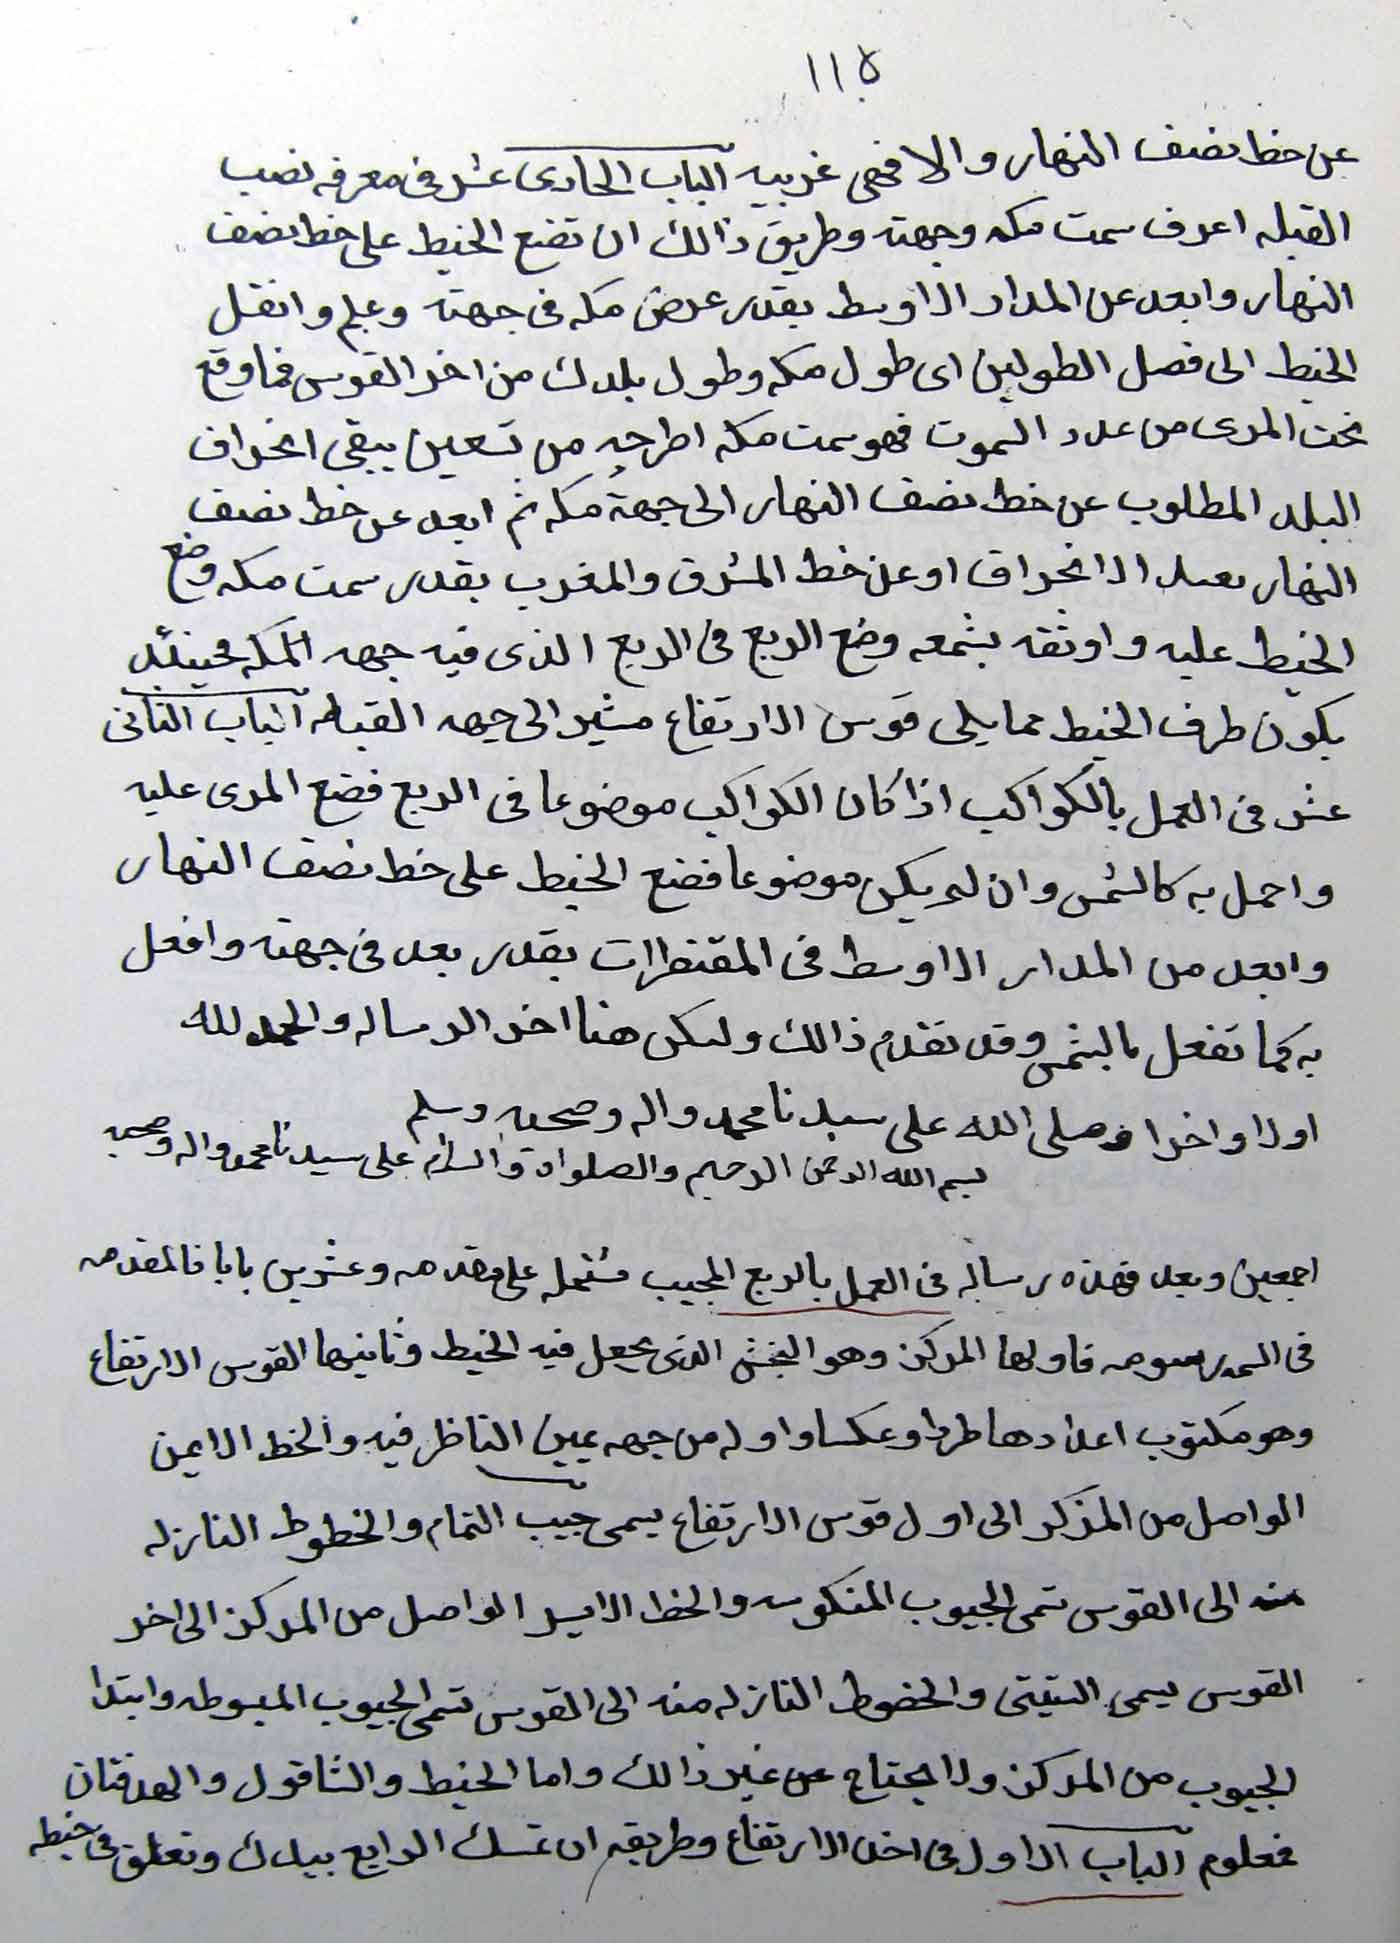 ١١٥
عن خط نصف النهار والا فهى غربيه الباب الحادى عشر فى معرفه نصب
القبله اعرف سمت مكه وجهته وطريق ذالك ان تضع الخيط على خط نصف
النهار وابعد عن المدار الاوسط بقدر عرض مكه فى جهته وعلم وانقل
الخيط الى فصل الطولين اى طول مكه وطول بلدك من اخر القوس فما وقع
تحت المرى من عدد السموت فهو سمت مكه اطرحه من تسعين يبقى انحراف
البلد المطلوب عن خط نصف النهار الى جهة مكه ثم ابعد عن خط نصف
النهار بعد الانحراف او عن خط المشرق والمغرب بقدر سمت مكه وضع
الخيط عليه واوثقه بشمعه وضع الربع فى الربع الذى فيه جهه المكه فحينئذ
يكون طرف الخيط مما يلى قوس الارتفاع مشير الى جهه القبله الباب الثانى
عشر فى العمل بالكواكب اذا كان الكواكب موضوعا فى الربع فضع المرى عليه
واحمل به كالشمس وان لم يكن موضوعا فضع الخيط على خط نصف النهار
وابعد من المدار الاوسط فى المقنطرات بقدر بعد فى جهته وافعل
به كما تفعل بالشمس وقد تقدم ذالك وليكن هنا اخر الرساله والحمد لله
اولا واخرا وصلى الله على سيدنا محمد واله وصحبه وسلم
بسم الله الرحمن الرحيم والصلواة والسلام على سيدنا محمد واله وصحبه
اجمعين وبعد فهذه رساله فى العمل بالربع المجيب مشتمله على مقدمه وعشرين بابا فالمقدمه
فى رسومه فاولها المركز وهو البخش الذى يجعل فيه الخيط وثانيها القوس الارتفاع
وهو مكتوب اعدادها طردا وعكسا واوله من جهه يمين الناظر فيه والخط الايمن
الواصل من المركز الى اول قوس الارتفاع يسمى جيب التمام والخطوط النازله
منه الى القوس تسمى الجيوب المنكوسه والخط الايسر الواصل من المركز الى اخر
القوس يسمى الستينى والخطوط النازله منه الى القوس تسمى الجيوب المبسوطه وابتدا
الجيوب من المركز ولا يحتاج عن غير ذالك واما الخيط والشاقول والهدفتان
فمعلوم الباب الاول فى اخذ الارتفاع وطريقه ان تمسك الرابع بيدك وتعلق فى خيطه